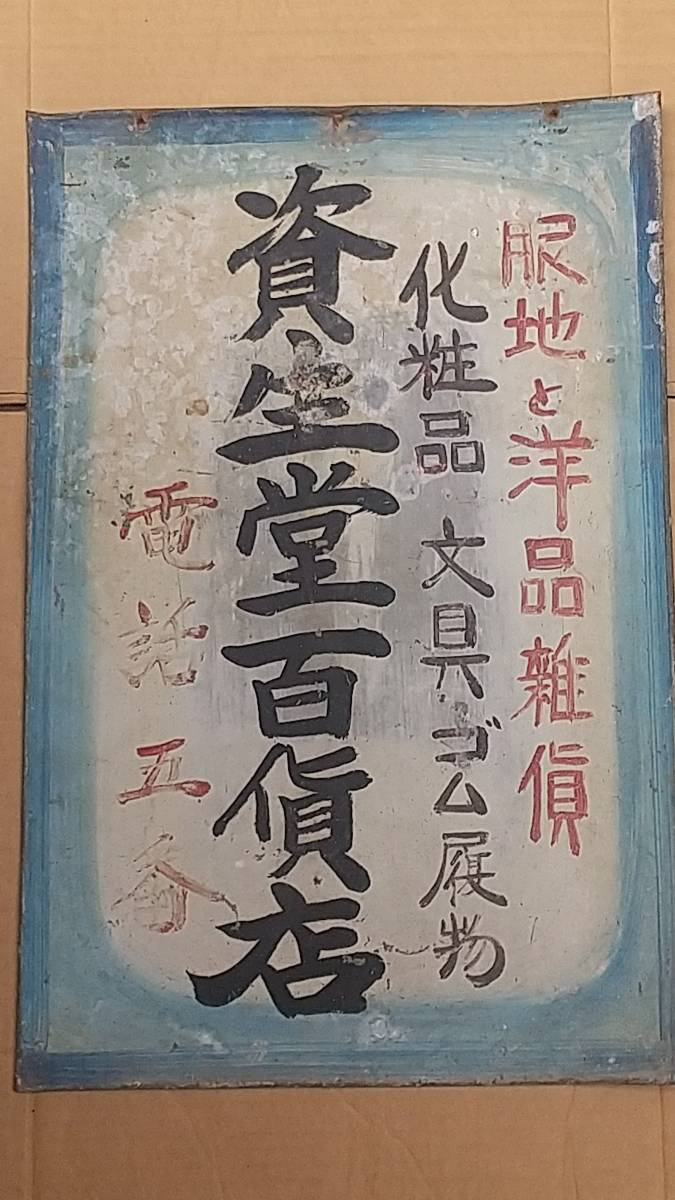 服地と洋品雑貨
化粧品 文具 ゴム履物
資生堂百貨店
電話五番